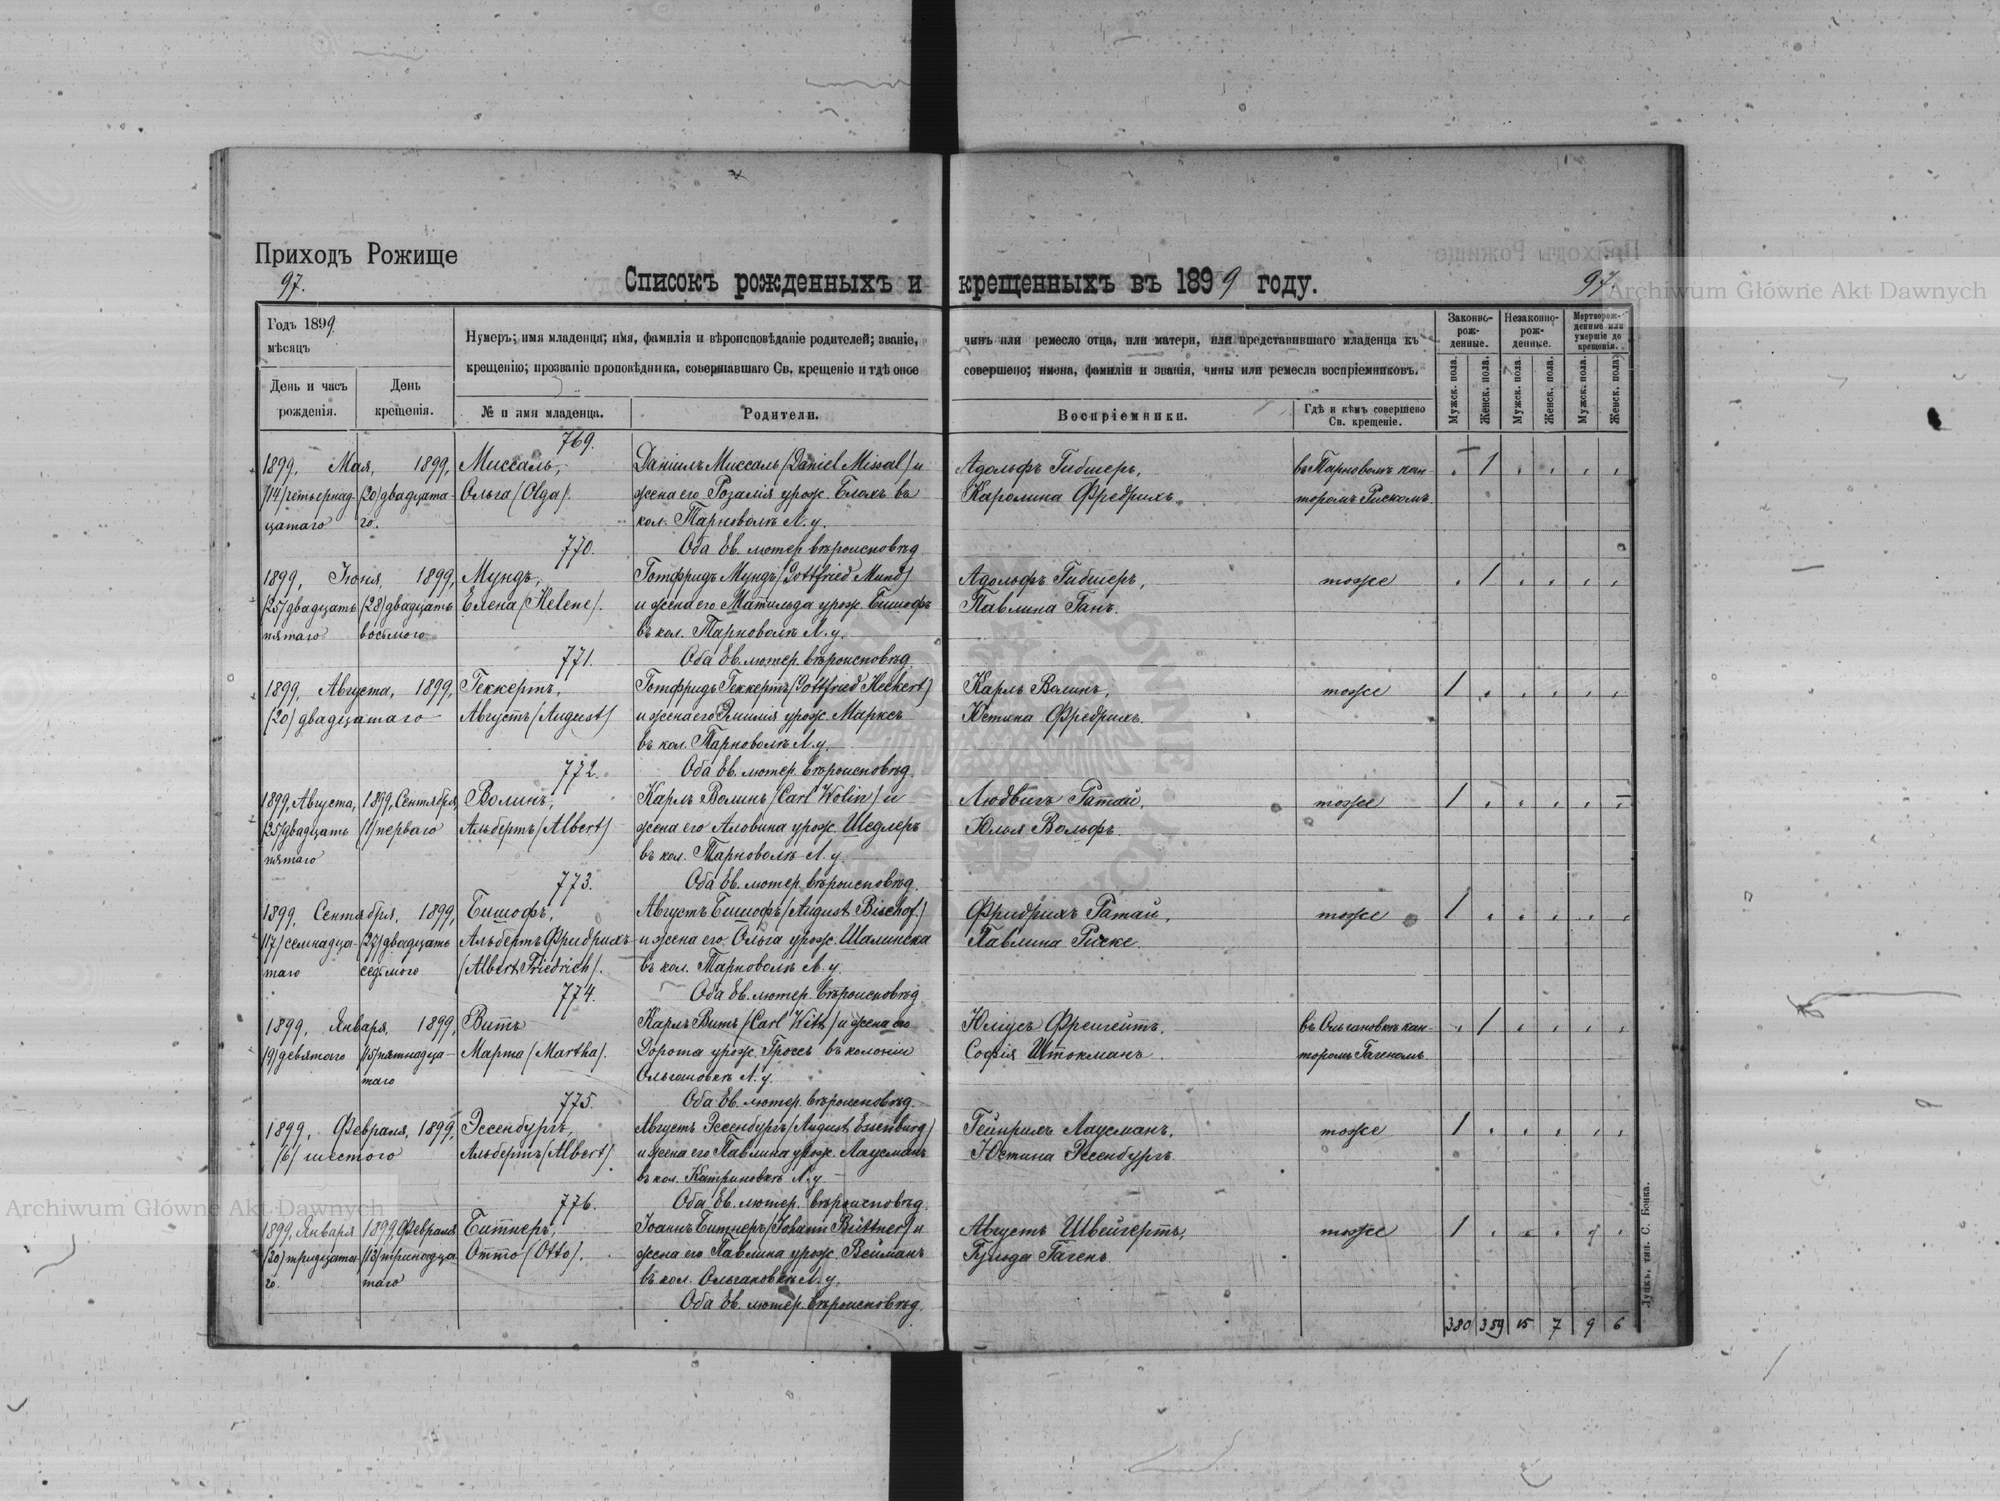 Приходъ Рожище
97.
Списокъ рожденныхъ и крещенныхъ въ 1899 году.
97.
Годъ 1899
мѣсяцъ
День и часъ рожденія.
День крещенія.
Нумеръ; имя младенца; имя, фамилія и вѣроисповѣданіе родителей; званіе, чинъ или ремесло отца, или матери, или представившаго младенца къ
крещенію; прозваніе проповѣдника, совершавшаго Св. крещеніе и гдѣ оное совершено; имена, фамиліи и званія, чины или ремесла воспріемниковъ.
№ и имя младенца.
Родители.
Воспріемники.
Гдѣ и кѣмъ совершено Св. крещеніе.
Законно-рож-денные.
Незаконно-рож-денные.
Мертворож-денные или умершіе до крещенія.
Мужск. пола.
Женск. пола.
Мужск. пола
Женск. пола.
Мужск. пола.
Женск. пола.
769.
1899, Мая, 1899, Миссаль, Даніилъ Миссаль (Daniel Missal) и Адольфъ Гибшеръ, въ Тарноволѣ кан- 1
(14) четырнад- (20) двадцата- Ольга (Olga). жена его Розалія урож. Блохъ въ Каролина Фредрихъ. торомъ Рискомъ.
цатаго го. кол. Тарноволѣ Л. у.
770. Оба Ев. лютер. вѣроисповѣд.
1899, Іюня, 1899, Мундъ, Готфридъ Мундъ (Gottfried Mund) Адольфъ Гибшеръ, тоже 1
(25) двадцать (28) двадцать Елена (Helene). и жена его Матильда урож. Бишофъ Павлина Ганъ.
пятаго восьмого въ кол. Тарноволѣ Л. у.
771. Оба Ев. лютер. вѣроисповѣд.
1899, Августа, 1899, Геккертъ, Готфридъ Геккертъ (Gottfried Heckert) Карлъ Волинъ, тоже 1
(20) двадцатаго Августъ (August) и жена его Эмилія урож. Марксъ Юстина Фредрихъ.
въ кол. Тарноволѣ Л. у.
772. Оба Ев. лютер. вѣроисповѣд.
1899, Августа, 1899, Сентября, Волинъ, Карлъ Волинъ (Carl Wolin) и Людвигъ Ратай, тоже 1
(25) двадцать (1) перваго Альбертъ (Albert) жена его Аловина урож. Шедлеръ Юлья Вольфъ.
пятаго въ кол. Тарноволѣ Л. у.
773. Оба Ев. лютер. вѣроисповѣд.
1899, Сентября, 1899, Бишофъ, Августъ Бишофъ (August Bischof) Фридрихъ Ратай, тоже 1
(17) семнадца- (27) двадцать Альбертъ Фридрихъ и жена его Ольга урож. Шалинска Павлина Риске.
таго седьмого (Albert Friedrich). въ кол. Тарноволѣ Л. у.
774. Оба Ев. лютер. вѣроисповѣд.
1899, Января, 1899, Витъ Карлъ Витъ (Carl Witt) и жена его Юліусъ въ Ольгановкѣ кан- 1
(9) девятаго (15) пятнадца- Марта (Martha). Дорота урож. Гроссъ въ колоніи Софія Штокманъ. торомъ Гагеномъ.
таго Ольгановкѣ Л. у.
775. Оба Ев. лютер. вѣроисповѣд.
1899, Февраля, 1899, Эссенбургъ, Августъ Эссенбургъ (August Essenburg) Гейнрихъ Лаусманъ, тоже 1
(6) шестого Альбертъ (Albert) и жена его Павлина урож. Лаусманъ Юстина Эссенбургъ.
въ кол. Катриновкѣ Л. у.
776. Оба Ев. лютер. вѣроисповѣд.
1899, Января 1899, Февраля Битнеръ, Іоаннъ Битнеръ (Johann Büttner) и Августъ Швейгертъ, тоже 1
(30) тридцата- (13) тринадца- Отто (Otto). жена его Павлина урож. Вейманъ Гульда Гагенъ.
го. таго въ кол. Ольгановкѣ Л. у.
Оба Ев. лютер. вѣроисповѣд.
380 359 15 7 9 6
Луцкъ, тип. С. Бонка.
Archiwum Główne Akt Dawnych
Archiwum Główne Akt Dawnych